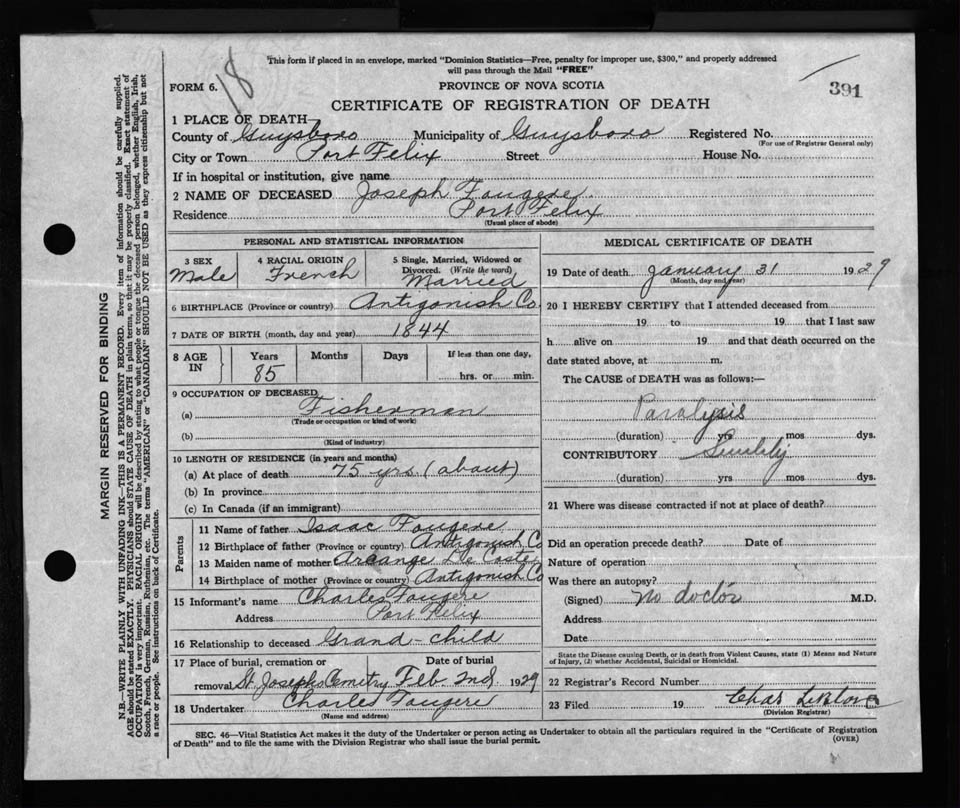 This form if placed in an envelope, marked "Dominion Statistics—Free, penalty for improper use, $300," and properly addressed
will pass through the Mail "FREE"
18
391
FORM 6.
PROVINCE OF NOVA SCOTIA
CERTIFICATE OF REGISTRATION OF DEATH
1 PLACE OF DEATH
County of Guysboro Municipality of Guysboro Registered No.
(For use of Registrar General only)
City or Town Port Felix Street House No.
If in hospital or institution, give name
2 NAME OF DECEASED Joseph Fougere
Residence Port Felix
(Usual place of abode)
PERSONAL AND STATISTICAL INFORMATION
3 SEX Male
4 RACIAL ORIGIN French
5 Single, Married, Widowed or
Divorced. (Write the word)
Married
6 BIRTHPLACE (Province or country) Antigonish Co.
7 DATE OF BIRTH (month, day and year) 1844
8 AGE IN
Years 85
Months
Days
If less than one day,
hrs. or min.
9 OCCUPATION OF DECEASED
(a) Fisherman
(Trade or occupation or kind of work)
(b)
(Kind of industry)
10 LENGTH OF RESIDENCE (in years and months)
(a) At place of death 75 yrs (about)
(b) In province
(c) In Canada (if an immigrant)
Parents
11 Name of father Isaac Fougere
12 Birthplace of father (Province or country) Antigonish Co
13 Maiden name of mother Arcange De Coste
14 Birthplace of mother (Province or country) Antigonish Co
15 Informant's name Charles Fougere
Address Port Felix
16 Relationship to deceased Grand-child
17 Place of burial, cremation or Date of burial
removal St. Josephs Cemetry Feb. 2nd 1929
18 Undertaker Charles Fougere
(Name and address)
MEDICAL CERTIFICATE OF DEATH
19 Date of death January 31 1929
(Month, day and year)
20 I HEREBY CERTIFY that I attended deceased from
19 to 19 that I last saw
h alive on 19 and that death occurred on the
date stated above, at m.
The CAUSE of DEATH was as follows:—
Paralysis
(duration) yrs mos dys.
CONTRIBUTORY
(duration) yrs mos dys.
21 Where was disease contracted if not at place of death?
Did an operation precede death? Date of
Nature of operation
Was there an autopsy?
(Signed) No doctor M.D.
Address
Date
State the Disease causing Death, or in death from Violent Causes, state (1) Means and Nature
of Injury, (2) whether Accidental, Suicidal or Homicidal.
22 Registrar's Record Number
23 Filed 19 Chas
(Division Registrar)
SEC. 46—Vital Statistics Act makes it the duty of the Undertaker or person acting as Undertaker to obtain all the particulars required in the "Certificate of Registration
of Death" and to file the same with the Division Registrar who shall issue the burial permit. (OVER)
MARGIN RESERVED FOR BINDING
N.B.—WRITE PLAINLY WITH UNFADING INK—THIS IS A PERMANENT RECORD. Every item of information should be carefully supplied.
AGE should be stated EXACTLY. PHYSICIANS should STATE CAUSE OF DEATH in plain terms, so that it may be properly classified. Exact statement of
OCCUPATION is very important. RACIAL ORIGIN will be described by stating to what people or tongue the deceased person belonged, whether English, Irish,
Scotch, French, German, Russian, Ruthenian, etc. The terms "AMERICAN" or "CANADIAN" SHOULD NOT BE USED as they express citizenship but not
a race or people. See instructions on back of Certificate.